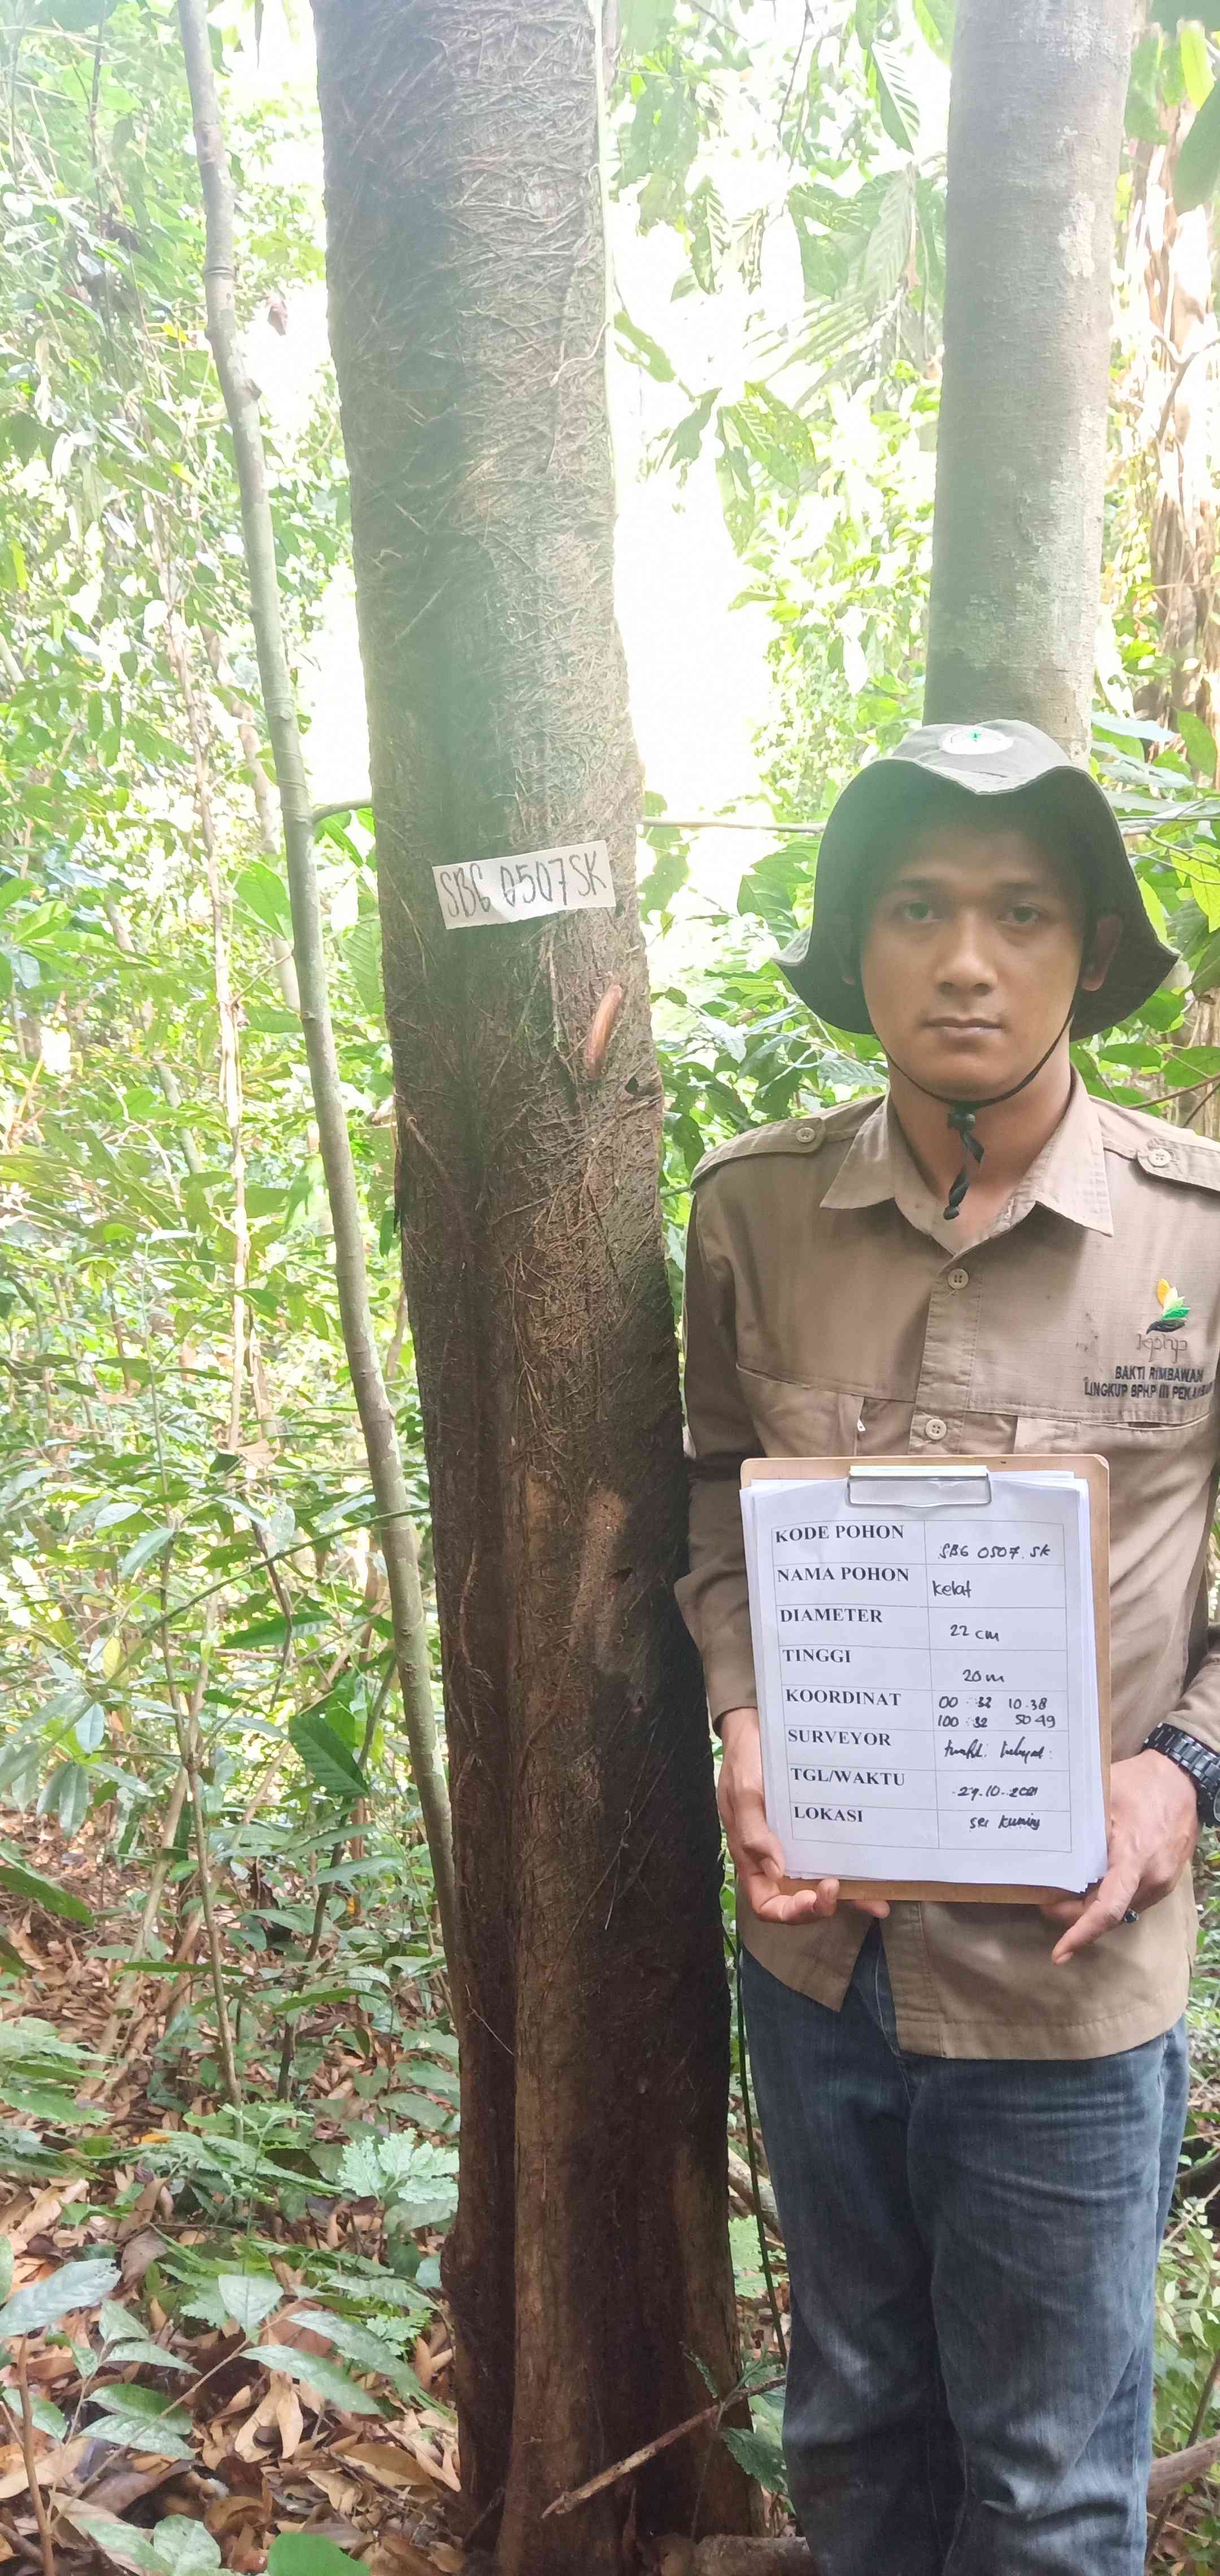 SBG 0507 SK
BAKTI RIMBAWAN
LINGKUP BPHP III
KODE POHON SBG 0507. SK
NAMA POHON Kelat
DIAMETER 22 cm
TINGGI 20 m
KOORDINAT 00 32 10.38
100 32 50 49
SURVEYOR
TGL/WAKTU 27.10.2021
LOKASI sei Kuning